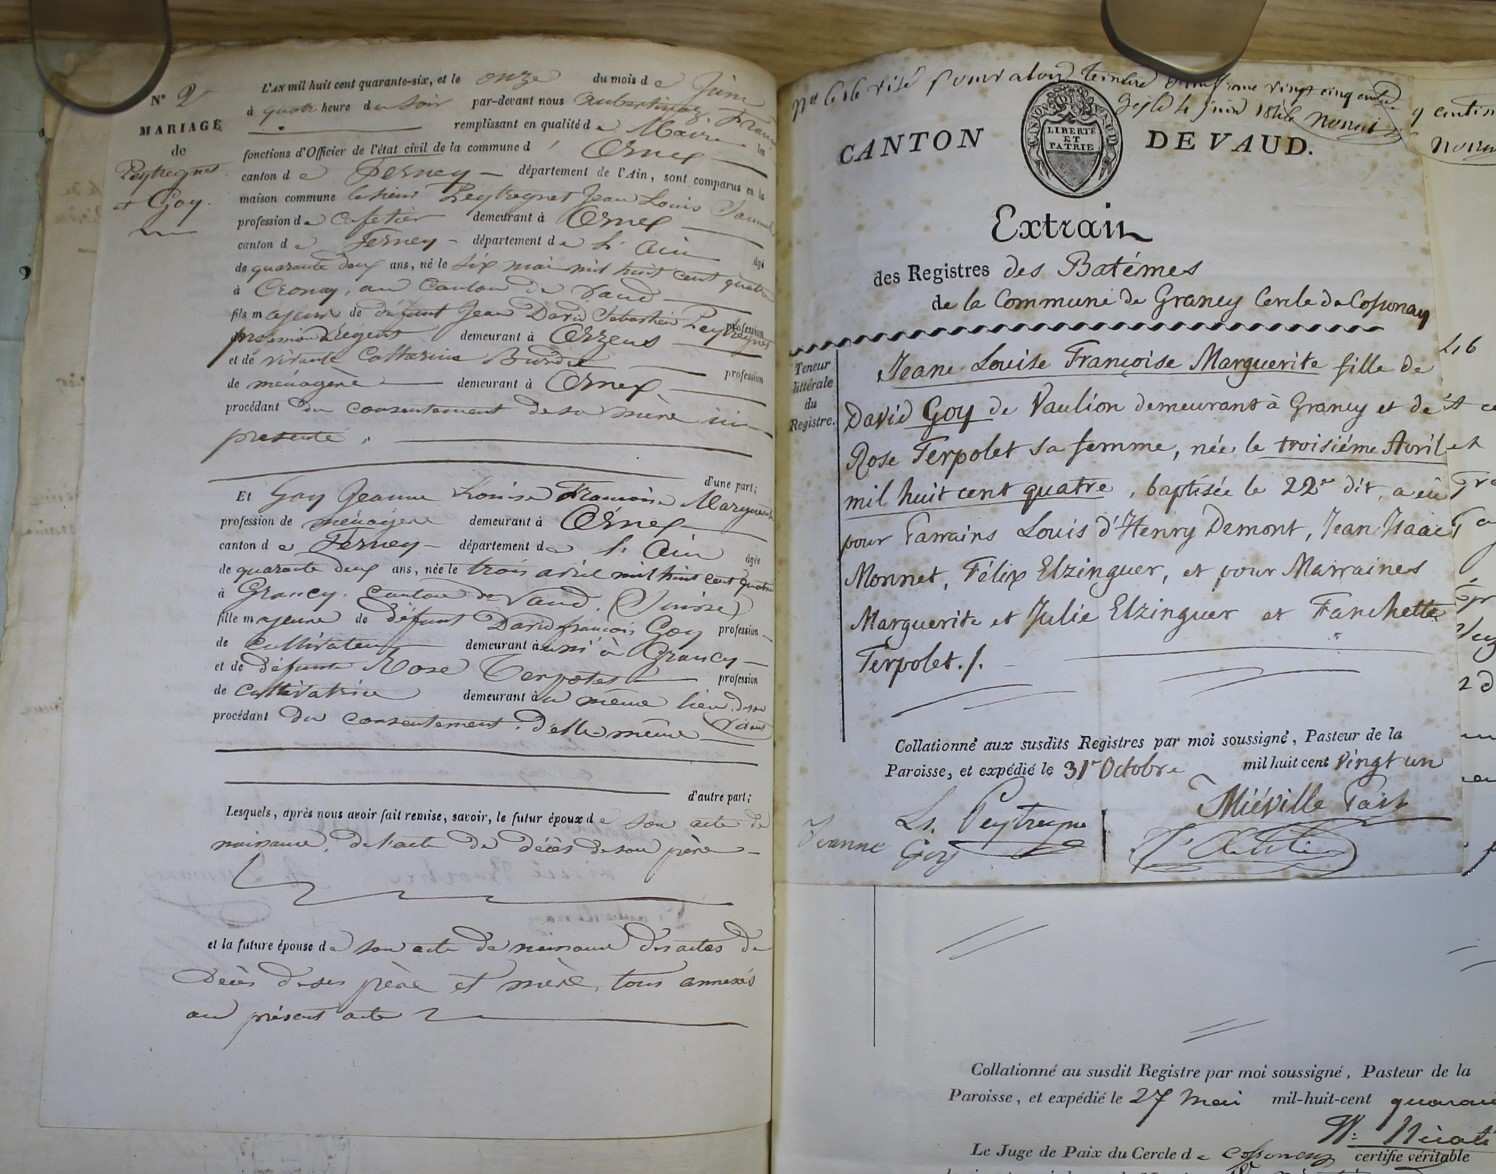 N° 2
MARIAGE
de
Peytregnet
et Goy.
L'AN mil huit cent quarante-six, et le onze du mois de Juin
à quatre heure du soir par-devant nous
remplissant en qualité de Maire les
fonctions d'Officier de l'état civil de la commune d' Ornex
canton de Ferney département de l'Ain, sont comparus en la
maison commune le sieur Peytregnet Jean Louis Samuel
profession de cafetier demeurant à Ornex
canton de Ferney département de l'Ain âgé
de quarante deux ans, né le six mai mil huit cent quatre
à Cronay, au Canton de Vaud
fils majeur de défunt Jean David Sébastien Peytregnet
profession Régent demeurant à
et de vivante Catherine profession
de ménagère demeurant à Ornex
procédant du consentement de sa mère ici
présente.
d'une part;
Et Goy Jeanne Louise Françoise Marguerite
profession de ménagère demeurant à Ornex
canton de Ferney département de l'Ain âgée
de quarante deux ans, née le trois avril mil huit cent quatre
à Grancy, canton de Vaud, (Suisse)
fille majeure de défunt David françois Goy profession
de cultivateur demeurant à Grancy
et de défunte Rose Terpolet profession
de cultivatrice demeurant au même lieu
procédant du consentement d'elle même
d'autre part;
Lesquels, après nous avoir fait remise, savoir, le futur époux de son acte de
naissance, de l'acte de décès de son père
et la future épouse de son acte de naissance des actes de
décès de ses père et mère, tous annexés
au présent acte
visé pour timbre vingt cinq
Gex le 4 Juin 1846
CANTON DE VAUD.
LIBERTÉ
ET
PATRIE
Extrait
des Registres des Batémes
de la Commune de Grancy Cercle de Cossonay
Teneur
littérale
du
Registre.
Jeane Louise Françoise Marguerite fille de
David Goy de Vaulion demeurant à Grancy et de
Rose Terpolet sa femme, née le troisiéme Avril
mil huit cent quatre, baptisée le 22e dit, a eu
pour Parrains Louis d'Henry Demont, Jean Isaac
Monnet, Félix Elzinguer, et pour Marraines
Marguerite et Julie Elzinguer et Fanchette
Terpolet./.
Collationné aux susdits Registres par moi soussigné, Pasteur de la
Paroisse, et expédié le 31r Octobre mil huit cent vingt un
Miéville Past
Ls. Peytregne
Jeanne Goy
Collationné au susdit Registre par moi soussigné, Pasteur de la
Paroisse, et expédié le 27 Mai mil-huit-cent
Le Juge de Paix du Cercle de Cossonay certifie véritable